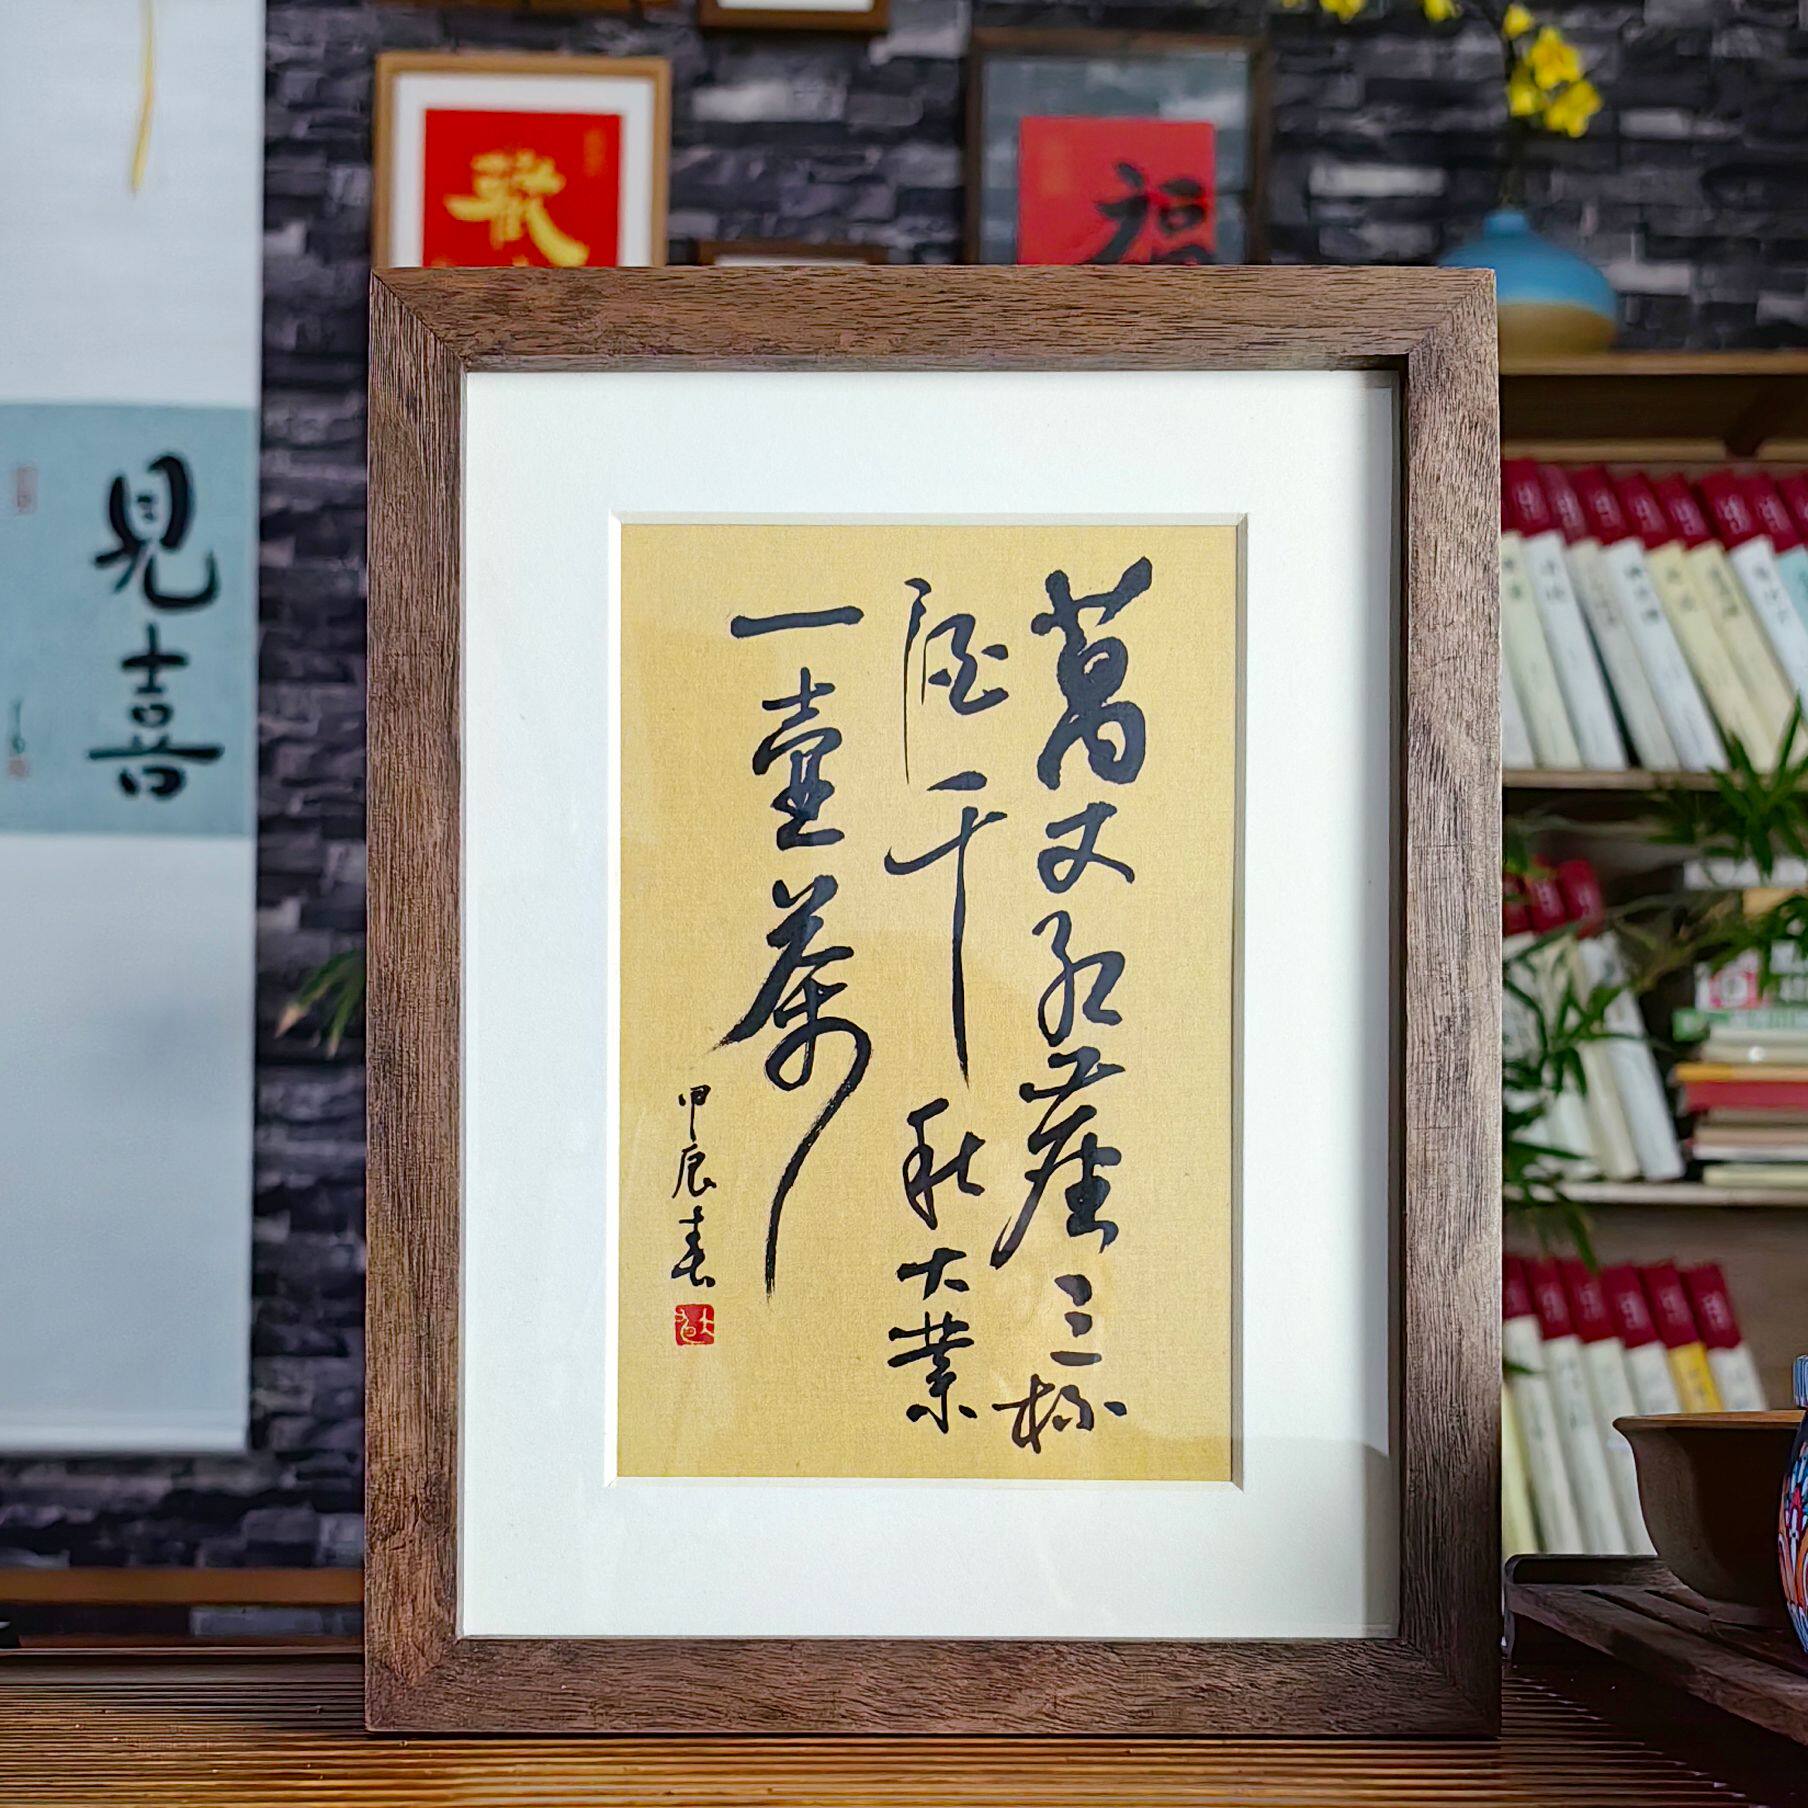 萬丈紅塵三杯
酒千秋大業
一壺茶
甲辰春
見喜
福